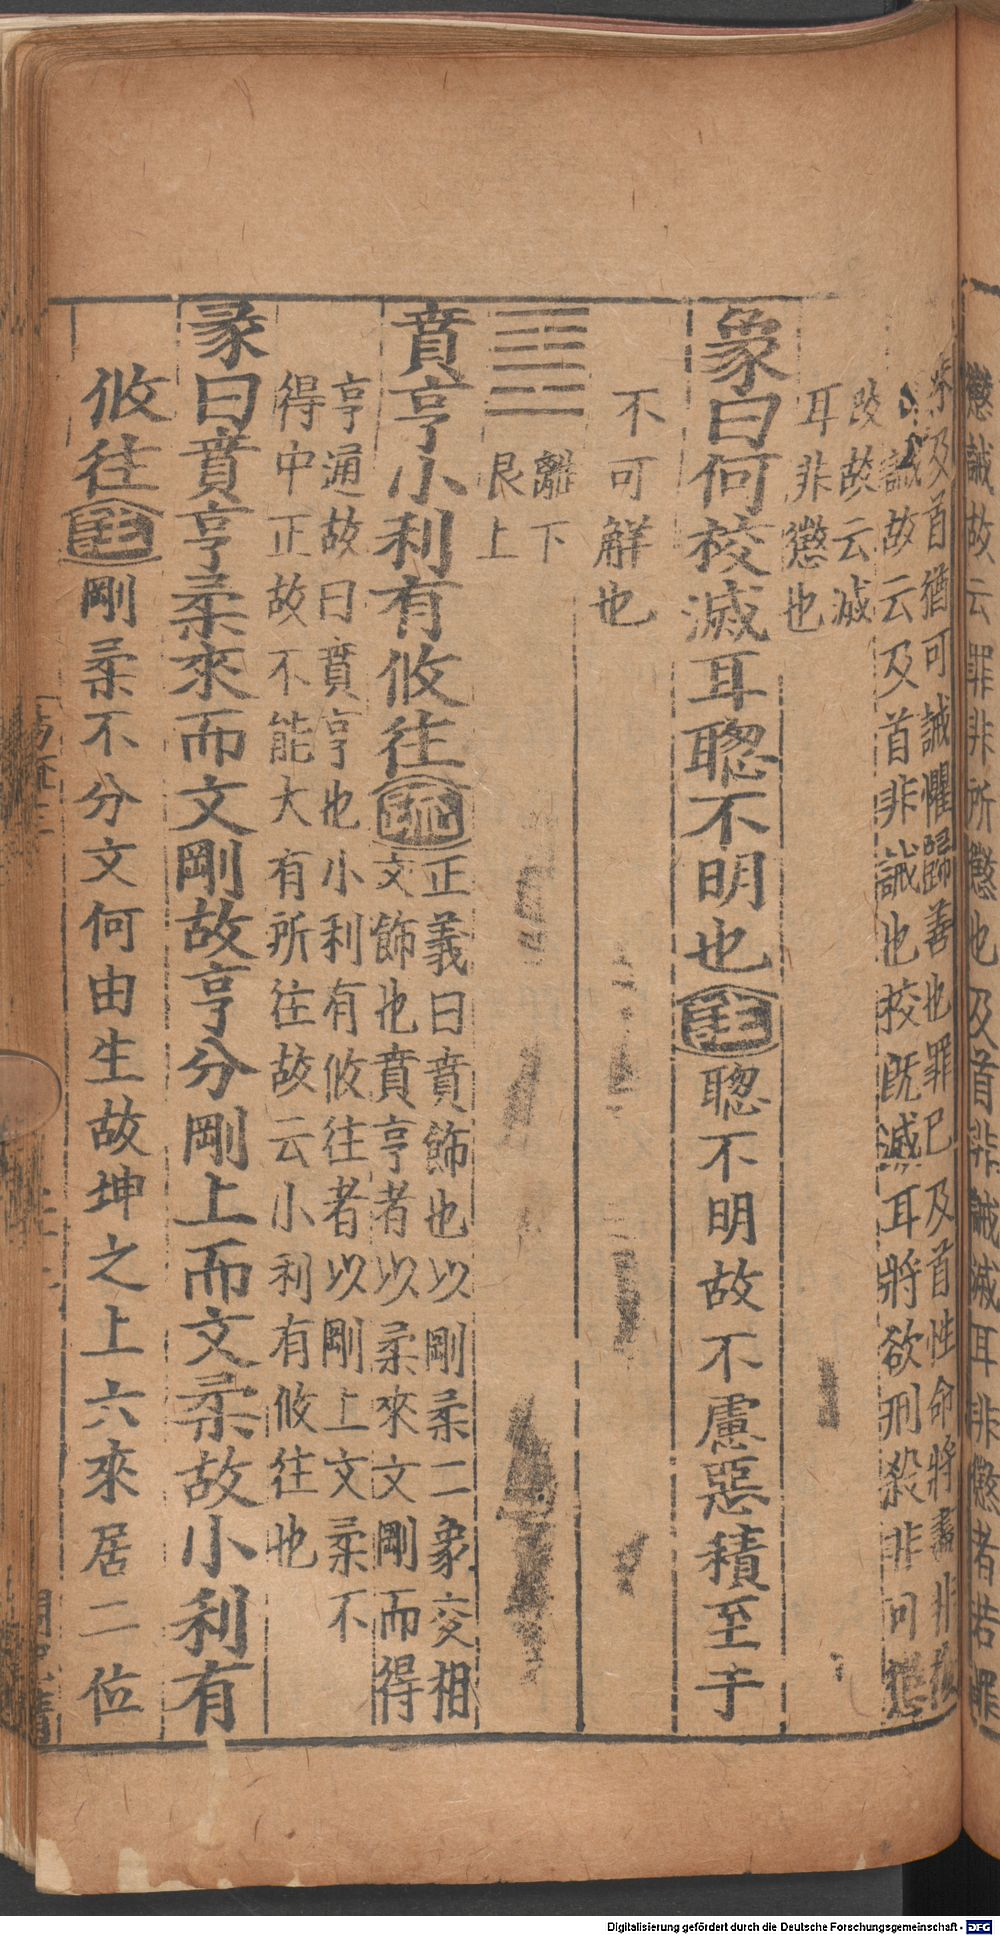 懲誡故云罪非所懲也及首非誡滅耳非懲者若罪
及首猶可誡懼歸善也罪已及首性命將盡非復
誡故云及首非誡也校既滅耳將欲刑殺非可懲
改故云滅
耳非懲也
象曰何校滅耳聦不明也 注 聦不明故不慮惡積至于
不可解也
離下
艮上
賁亨小利有攸往 疏 正義曰賁飾也以剛柔二象交相
文飾也賁亨者以柔來文剛而得
亨通故曰賁亨也小利有攸往者以剛上文柔不
得中正故不能大有所往故云小利有攸往也
彖曰賁亨柔來而文剛故亨分剛上而文柔故小利有
攸往 注 剛柔不分文何由生故坤之上六來居二位
Digitalisierung gefördert durch die Deutsche Forschungsgemeinschaft - DFG